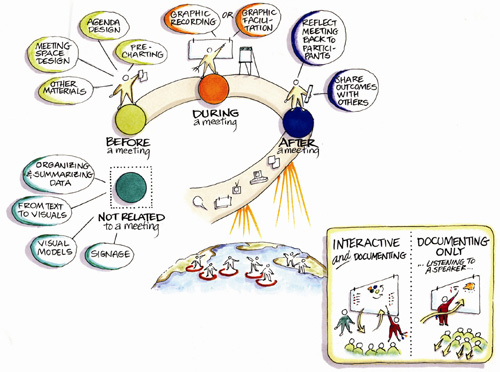 AGENDA
DESIGN
MEETING
SPACE
DESIGN
PRE-
CHARTING
OTHER
MATERIALS
GRAPHIC
RECORDING
OR
GRAPHIC
FACILI-
TATION
REFLECT
MEETING
BACK TO
PARTICI-
PANTS
SHARE
OUTCOMES
WITH
OTHERS
BEFORE
a meeting
DURING
a meeting
AFTER
a meeting
ORGANIZING
& SUMMARIZING
DATA
FROM TEXT
TO VISUALS
VISUAL
MODELS
SIGNAGE
NOT RELATED
to a meeting
INTERACTIVE
and DOCUMENTING
DOCUMENTING
ONLY
...LISTENING TO
A SPEAKER...